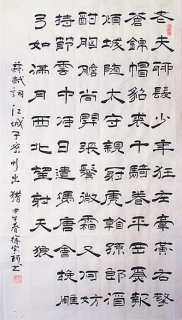 老夫聊發少年狂左牽黃右擎
蒼錦帽貂裘千騎卷平岡為報
傾城隨太守親射虎看孫郎酒
酣胸膽尚開張鬢微霜又何妨
持節雲中何日遣馮唐會挽雕
弓如滿月西北望射天狼
蘇軾詞江城子密州出獵